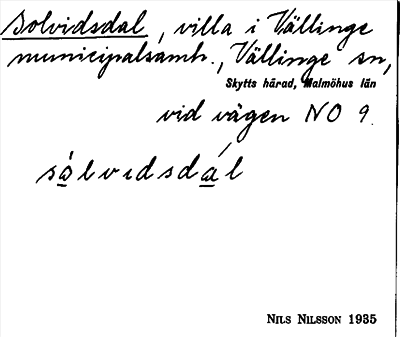 Solvidsdal, villa i Vällinge
municipalsamh., Vällinge sn,
Skytts härad, Malmöhus län
vid vägen NO 9.
sálvidsdál
NILS NILSSON 1935